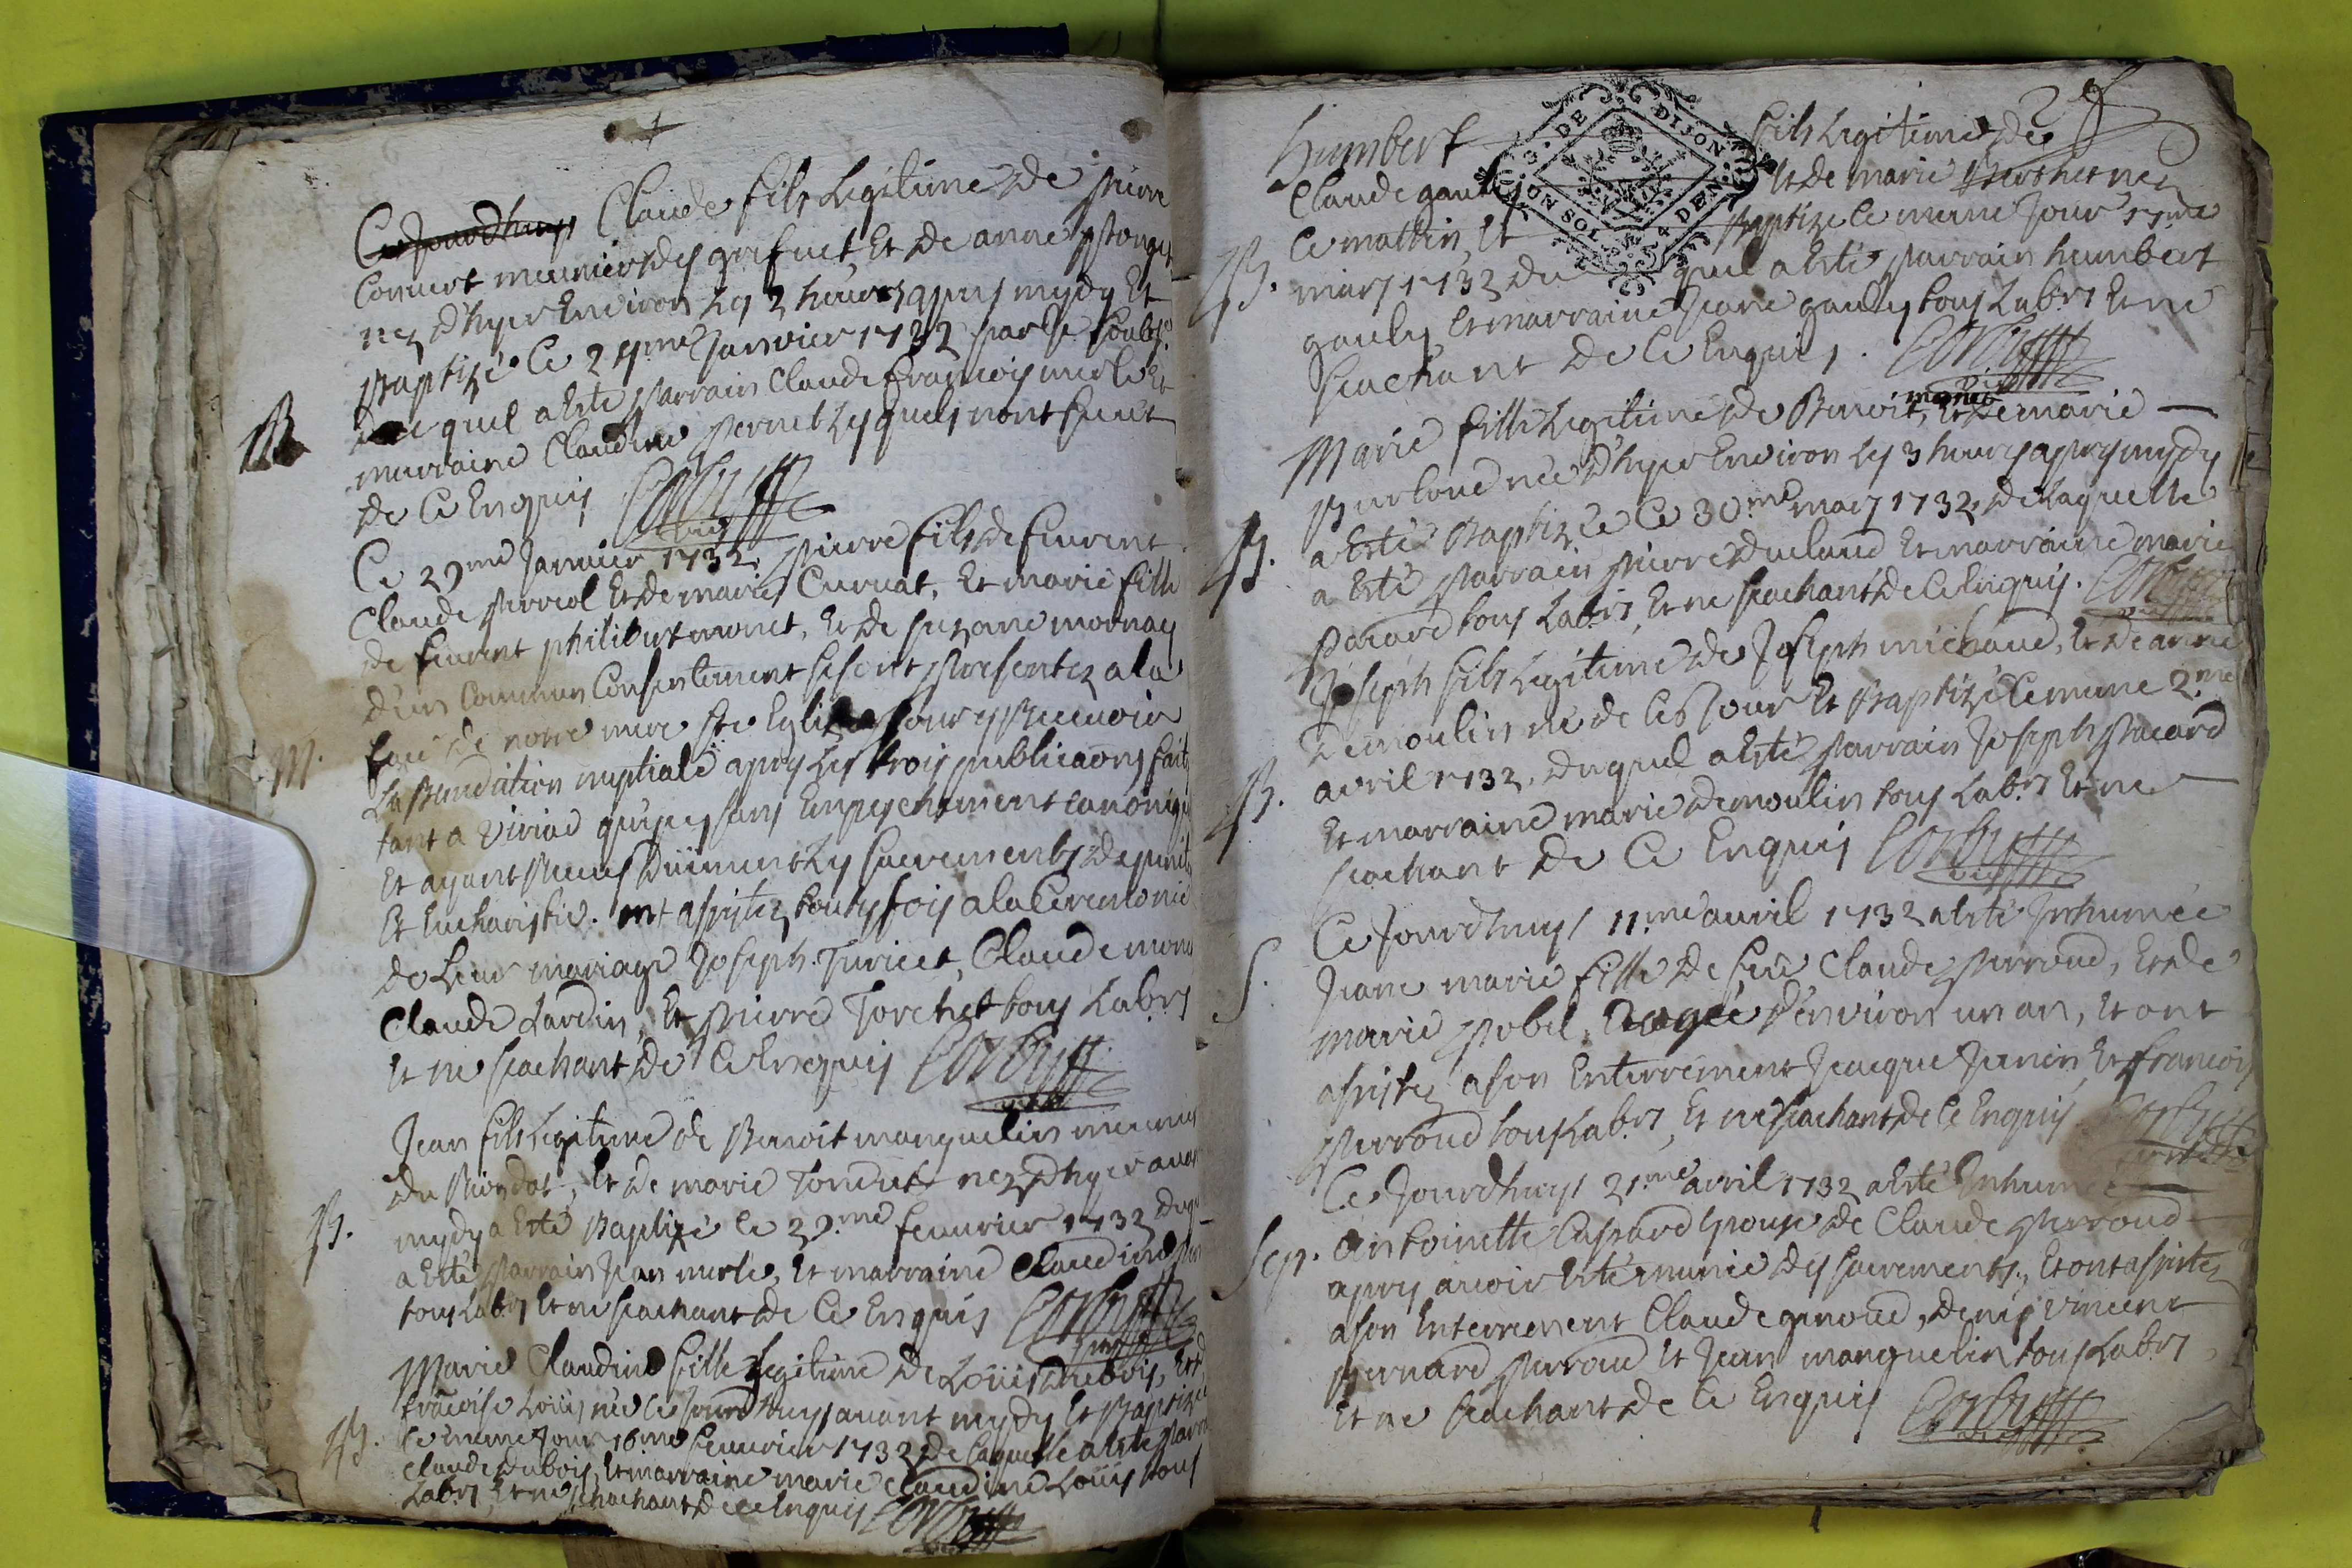 Claude fils Legitime de pierre
Convert meunier des Et de anne
nez d'hyer Environ Les 2 heures apres mydy Et
Baptizé Ce janvier 1732 par le soubs.
duquel a Esté parrain Claude françois merle Et
marraine Claudine pernet Lesquels nont sceut
B.
de Ce Enquis
Ce 29.me Janvier 1732. pierre fils de feurent
Claude perreol Et de marie Curnat, Et marie fille
de feurent philibert monet, Et de suzane mornay
d'un Commun Consentement se sont presentez a la
face de notre mere ste Eglise pour y Recevoir
M.
La Benediction nuptiale apres Les trois publicaõns faites
tant a Viriad qu'icy sans Empeschement canonique
Et ayant Receus Düement Les sacrements de penit.
Et Eucharistie. ont assistez toutesfois a la Ceremonie
de Leur mariage Joseph Claude monet
Claude Jardin, Et pierre Torchet tous Labrs
Et ne scachant de Ce Enquis
Jean fils Legitime de Benoit manguelin meunier
du Et de marie Tondut nez d'hyer avant
B.
mydy a Esté Baptizé le feuvrier 1732 duquel
a Esté parrain Jean merle, Et marraine Claudine
tous Labrs Et ne scachant de Ce Enquis
Marie Claudine fille Legitime de Loüis Dubois, Et de
françoise Loüis née Ce Jourdhuy avant mydy Et Baptizée
B.
le meme Jour 16.me feuvrier 1732 de Laquelle a Esté parrain
Claude dubois, Et marraine marie Claudine Loüis tous
Labrs, Et ne scachant de ce Enquis
2
humbert fils Legitime de
Claude gauly Et de marie Berthet nez
G. DE DIJON
ON SOL. 4 DEN.
ce mattin, Et Baptize le meme Jour
B.
mars 1732 du quel a Esté parrain humbert
gauly, Et marraine Jeane gauly tous Labrs Et ne
scachant de Ce Enquis.
Marie fille Legitime de Benoit, Et de marie
née d'hyer Environ Les 3 heures apres mydy
B.
a Esté Baptizée Ce 30.me mars 1732, de Laquelle
a Esté parrain pierre Et marraine marie
pacard tous Labrs, Et ne scachant de Ce Enquis.
Joseph fils Legitime de Joseph michaud, Et de anne
Demoulin né de Ce Jour Et Baptizé Ce meme 2.me
B.
avril 1732. duquel a Esté parrain Joseph pacard
Et marraine marie demoulin tous Labrs Et ne
scachant de Ce Enquis
Ce Jourdhuy 11.me avril 1732 a Esté Inhumée
S.
Jeane marie fille de feu Claude perroud, Et de
marie pobel, agée d'environ un an, Et ont
assistez a son Enterrement Jacque Janin, Et françois
perroud tous Labrs, Et ne scachant de Ce Enquis
Ce Jourdhuy 21.me avril 1732 a Esté Inhumée
Sep.
Antoinette Epouse de Claude perroud
apres avoir Esté munie des sacrements, Et ont assistez
a son Enterrement Claude genoud, denis vincent
Bernard perroud Et Jean manguelin tous Labrs,
Et ne scachant de Ce Enquis